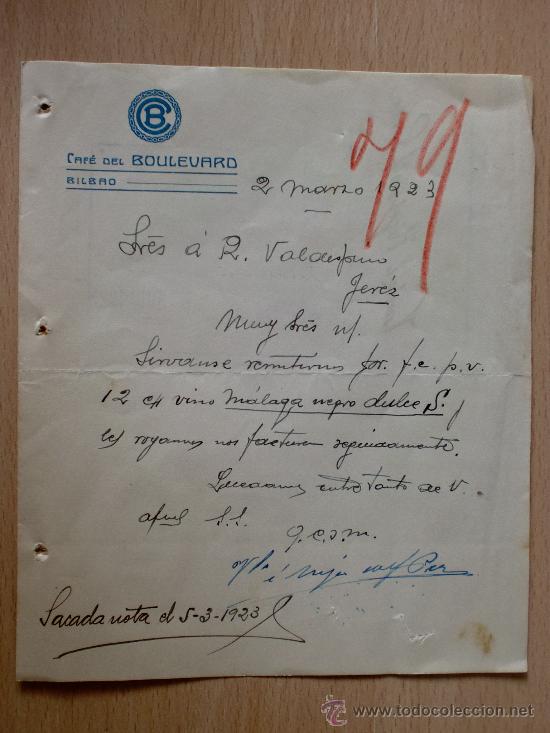 CB
CAFÉ DEL BOULEVARD
BILBAO
79
2 marzo 1923
Srés á R. Valdespino
Jeréz
Muy Srés n/.
Sirvanse remitirnos por f.c. p.v.
12 c/ vino Málaga negro dulce S. y
les rogamos nos facturen seguidamente.
Quedamos entre tanto de V.
S.S.
q.e.s.m.
Sacada nota el 5-3-1923
www.todocoleccion.net